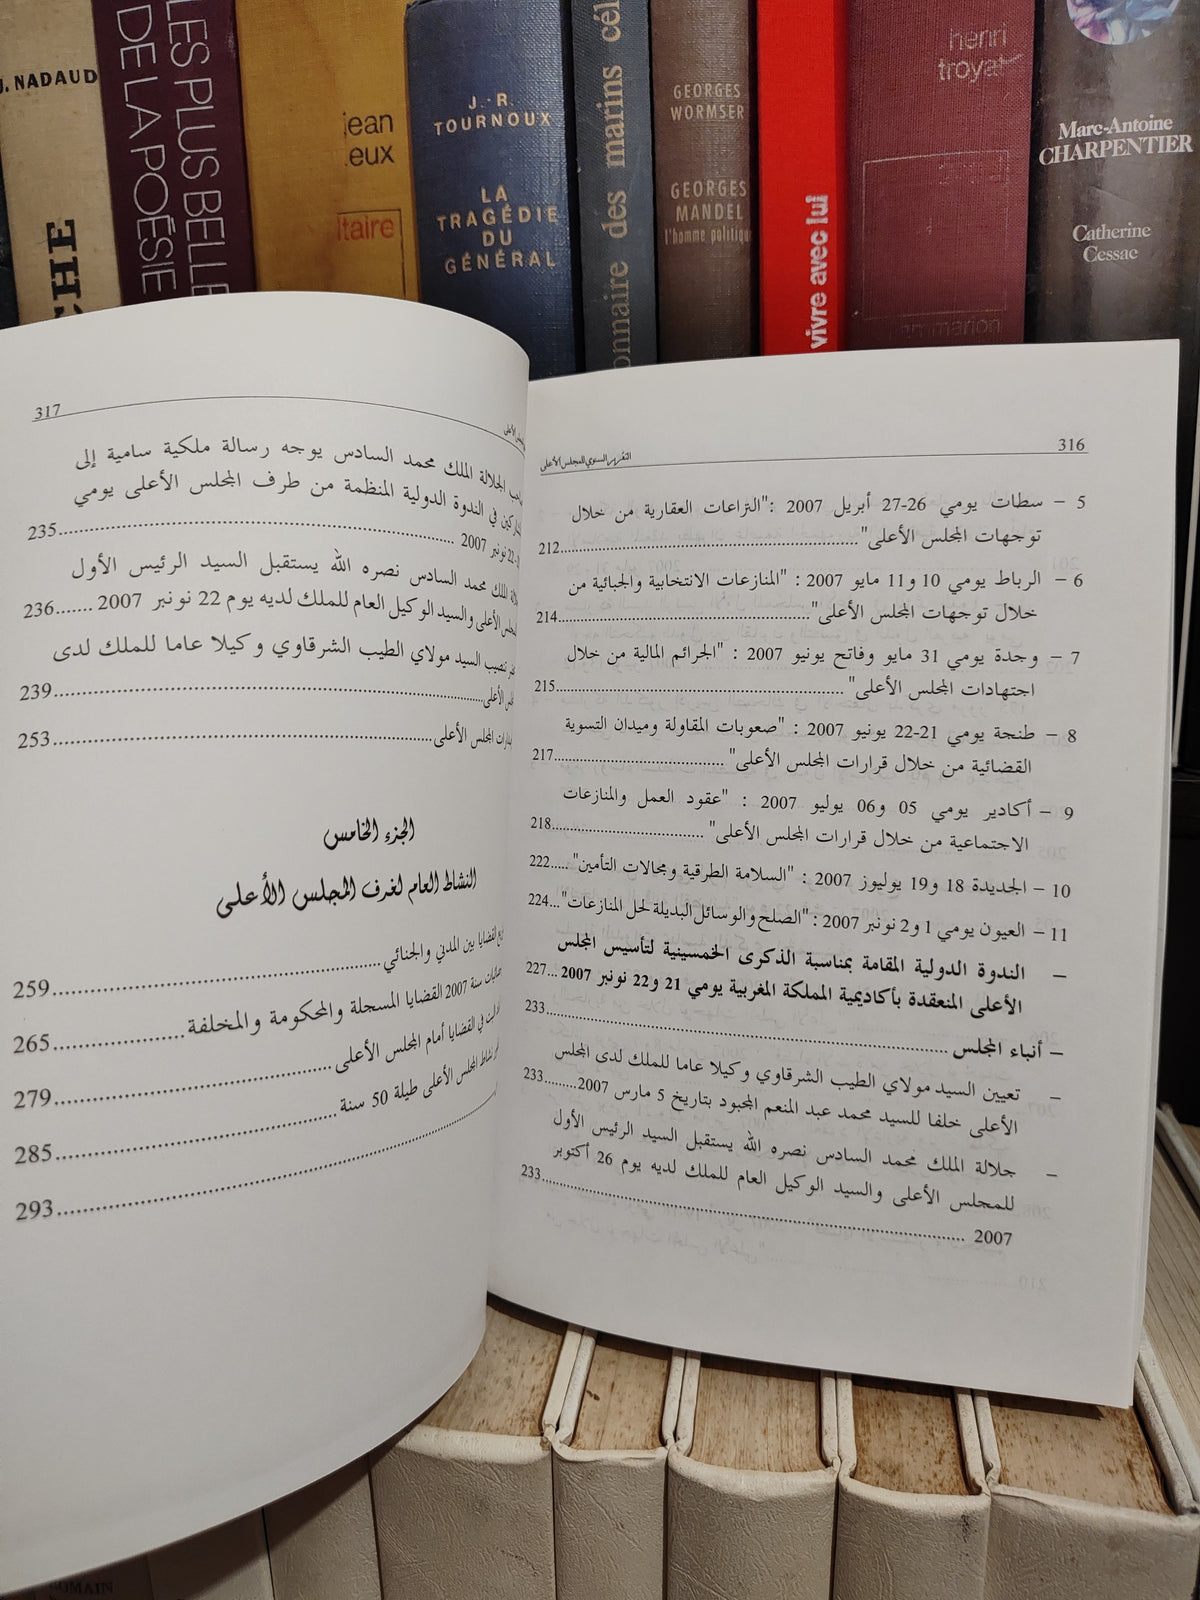 J. NADAUD
CHE
LES PLUS BELLE
DE LA POÉSIE
jean
taire
J.-R.
TOURNOUX
LA
TRAGÉDIE
DU
GÉNÉRAL
onnaire des marins cél
GEORGES
WORMSER
GEORGES
MANDEL
l'homme politique
vivre avec lui
henri
troyat
Marc-Antoine
CHARPENTIER
Catherine
Cessac
316
التقرير السنوي للمجلس الأعلى
5 – سطات يومي 26-27 أبريل 2007 :"النزاعات العقارية من خلال
توجهات المجلس الأعلى"..............................212
6 – الرباط يومي 10 و11 مايو 2007 : "المنازعات الانتخابية والجبائية من
خلال توجهات المجلس الأعلى"..............................214
7 – وجدة يومي 31 مايو وفاتح يونيو 2007 : "الجرائم المالية من خلال
اجتهادات المجلس الأعلى"..............................215
8 – طنجة يومي 21-22 يونيو 2007 : "صعوبات المقاولة وميدان التسوية
القضائية من خلال قرارات المجلس الأعلى"....................217
9 – أكادير يومي 05 و06 يوليو 2007 : "عقود العمل والمنازعات
الاجتماعية من خلال قرارات المجلس الأعلى"....................218
10 – الجديدة 18 و19 يوليوز 2007 : "السلامة الطرقية ومجالات التأمين".....222
11 – العيون يومي 1 و2 نونبر 2007 : "الصلح والوسائل البديلة لحل المنازعات"...224
– الندوة الدولية المقامة بمناسبة الذكرى الخمسينية لتأسيس المجلس
الأعلى المنعقدة بأكاديمية المملكة المغربية يومي 21 و22 نونبر 2007...227
– أنباء المجلس..............................233
– تعيين السيد مولاي الطيب الشرقاوي وكيلا عاما للملك لدى المجلس
الأعلى خلفا للسيد محمد عبد المنعم المجبود بتاريخ 5 مارس 2007.........233
– جلالة الملك محمد السادس نصره الله يستقبل السيد الرئيس الأول
للمجلس الأعلى والسيد الوكيل العام للملك لديه يوم 26 أكتوبر
2007..............................233
317
الجلالة الملك محمد السادس يوجه رسالة ملكية سامية إلى
في الندوة الدولية المنظمة من طرف المجلس الأعلى يومي
22 نونبر 2007..............................235
الملك محمد السادس نصره الله يستقبل السيد الرئيس الأول
الأعلى والسيد الوكيل العام للملك لديه يوم 22 نونبر 2007.......236
تنصيب السيد مولاي الطيب الشرقاوي وكيلا عاما للملك لدى
الأعلى..............................239
المجلس الأعلى..............................253
الجزء الخامس
النشاط العام لغرف المجلس الأعلى
القضايا بين المدني والجنائي..............................259
سنة 2007 القضايا المسجلة والمحكومة والمخلفة....................265
في القضايا أمام المجلس الأعلى..............................279
نشاط المجلس الأعلى طيلة 50 سنة..............................285
..............................293